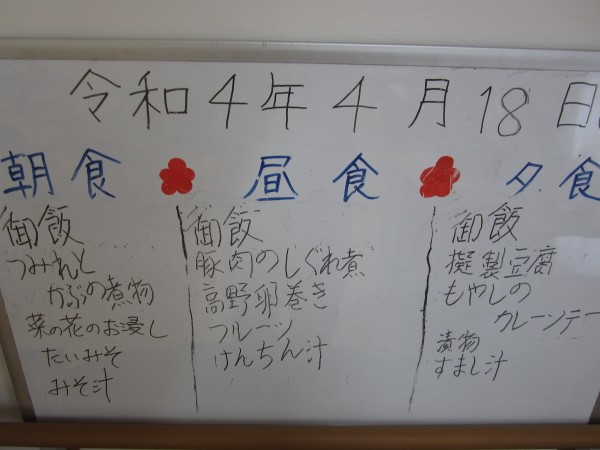 令和4年4月18日
朝食
御飯
つみれと
かぶの煮物
菜の花のお浸し
たいみそ
みそ汁
昼食
御飯
豚肉のしぐれ煮
高野卵巻き
フルーツ
けんちん汁
夕食
御飯
擬製豆腐
もやしの
カレーソテー
漬物
すまし汁